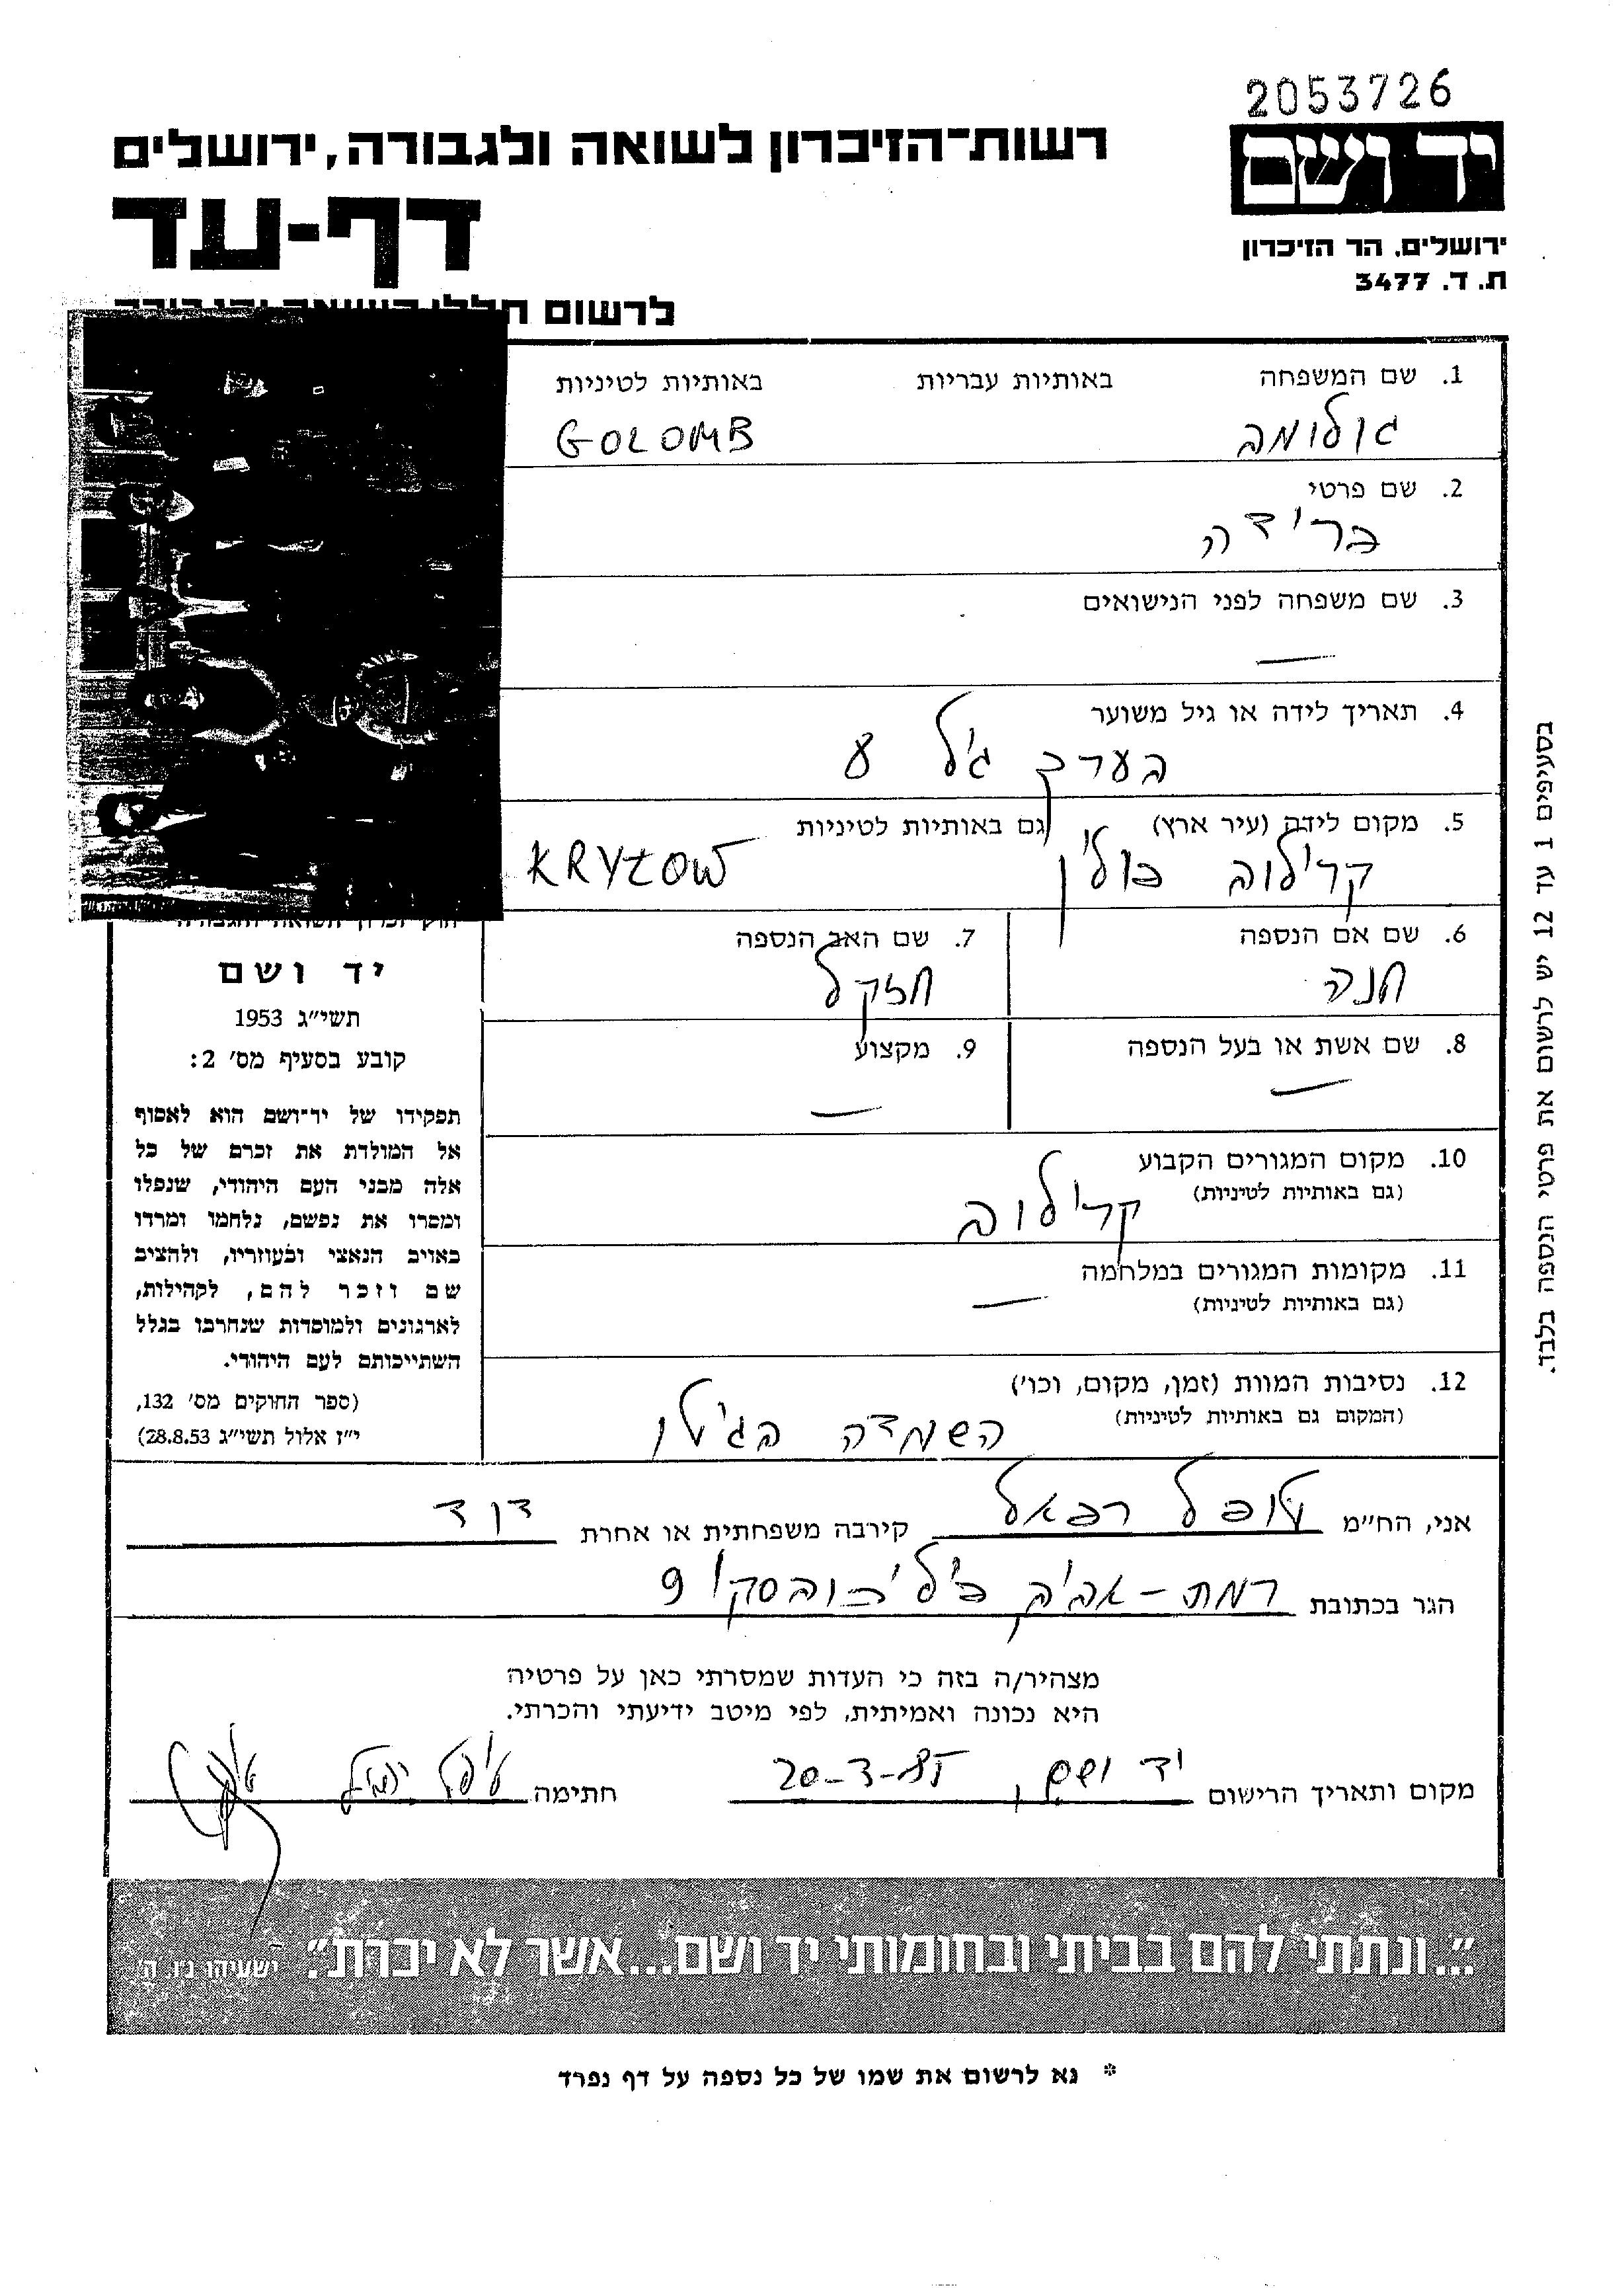 2053726
יד ושם
רשות־הזיכרון לשואה ולגבורה, ירושלים
דף-עד
ירושלים, הר הזיכרון
ת. ד. 3477
לרשום חללי השואה והגבורה
1. שם המשפחה באותיות עבריות באותיות לטיניות
גולומב GOLOMB
2. שם פרטי
פרידה
3. שם משפחה לפני הנישואים
—
4. תאריך לידה או גיל משוער
בערך גיל 8
5. מקום לידה (עיר ארץ) גם באותיות לטיניות
קרילוב פולין KRYŁOW
6. שם אם הנספה
חנה
7. שם האב הנספה
חזקל
8. שם אשת או בעל הנספה
—
9. מקצוע
—
10. מקום המגורים הקבוע
(גם באותיות לטיניות)
קרילוב
11. מקומות המגורים במלחמה
(גם באותיות לטיניות)
—
12. נסיבות המוות (זמן, מקום, וכו')
(המקום גם באותיות לטיניות)
השמדה בגיטו
חוק זכרון השואה והגבורה
יד ושם
תשי״ג 1953
קובע בסעיף מס׳ 2:
תפקידו של יד־ושם הוא לאסוף
אל המולדת את זכרם של כל
אלה מבני העם היהודי, שנפלו
ומסרו את נפשם, נלחמו ומרדו
באויב הנאצי ובעוזריו, ולהציב
שם וזכר להם, לקהילות,
לארגונים ולמוסדות שנחרבו בגלל
השתייכותם לעם היהודי.
(ספר החוקים מס׳ 132,
י״ז אלול תשי״ג 28.8.53)
בסעיפים 1 עד 12 יש לרשום את פרטי הנספה בלבד.
אני, הח״מ טופל רפאל קירבה משפחתית או אחרת דוד
הגר בכתובת רמת-אביב 9
מצהיר/ה בזה כי העדות שמסרתי כאן על פרטיה
היא נכונה ואמיתית, לפי מיטב ידיעתי והכרתי.
מקום ותאריך הרישום יד ושם, 20-3-85 חתימה
״...ונתתי להם בביתי ובחומותי יד ושם...אשר לא יכרת״. ישעיהו נ״ו, ה׳
* נא לרשום את שמו של כל נספה על דף נפרד